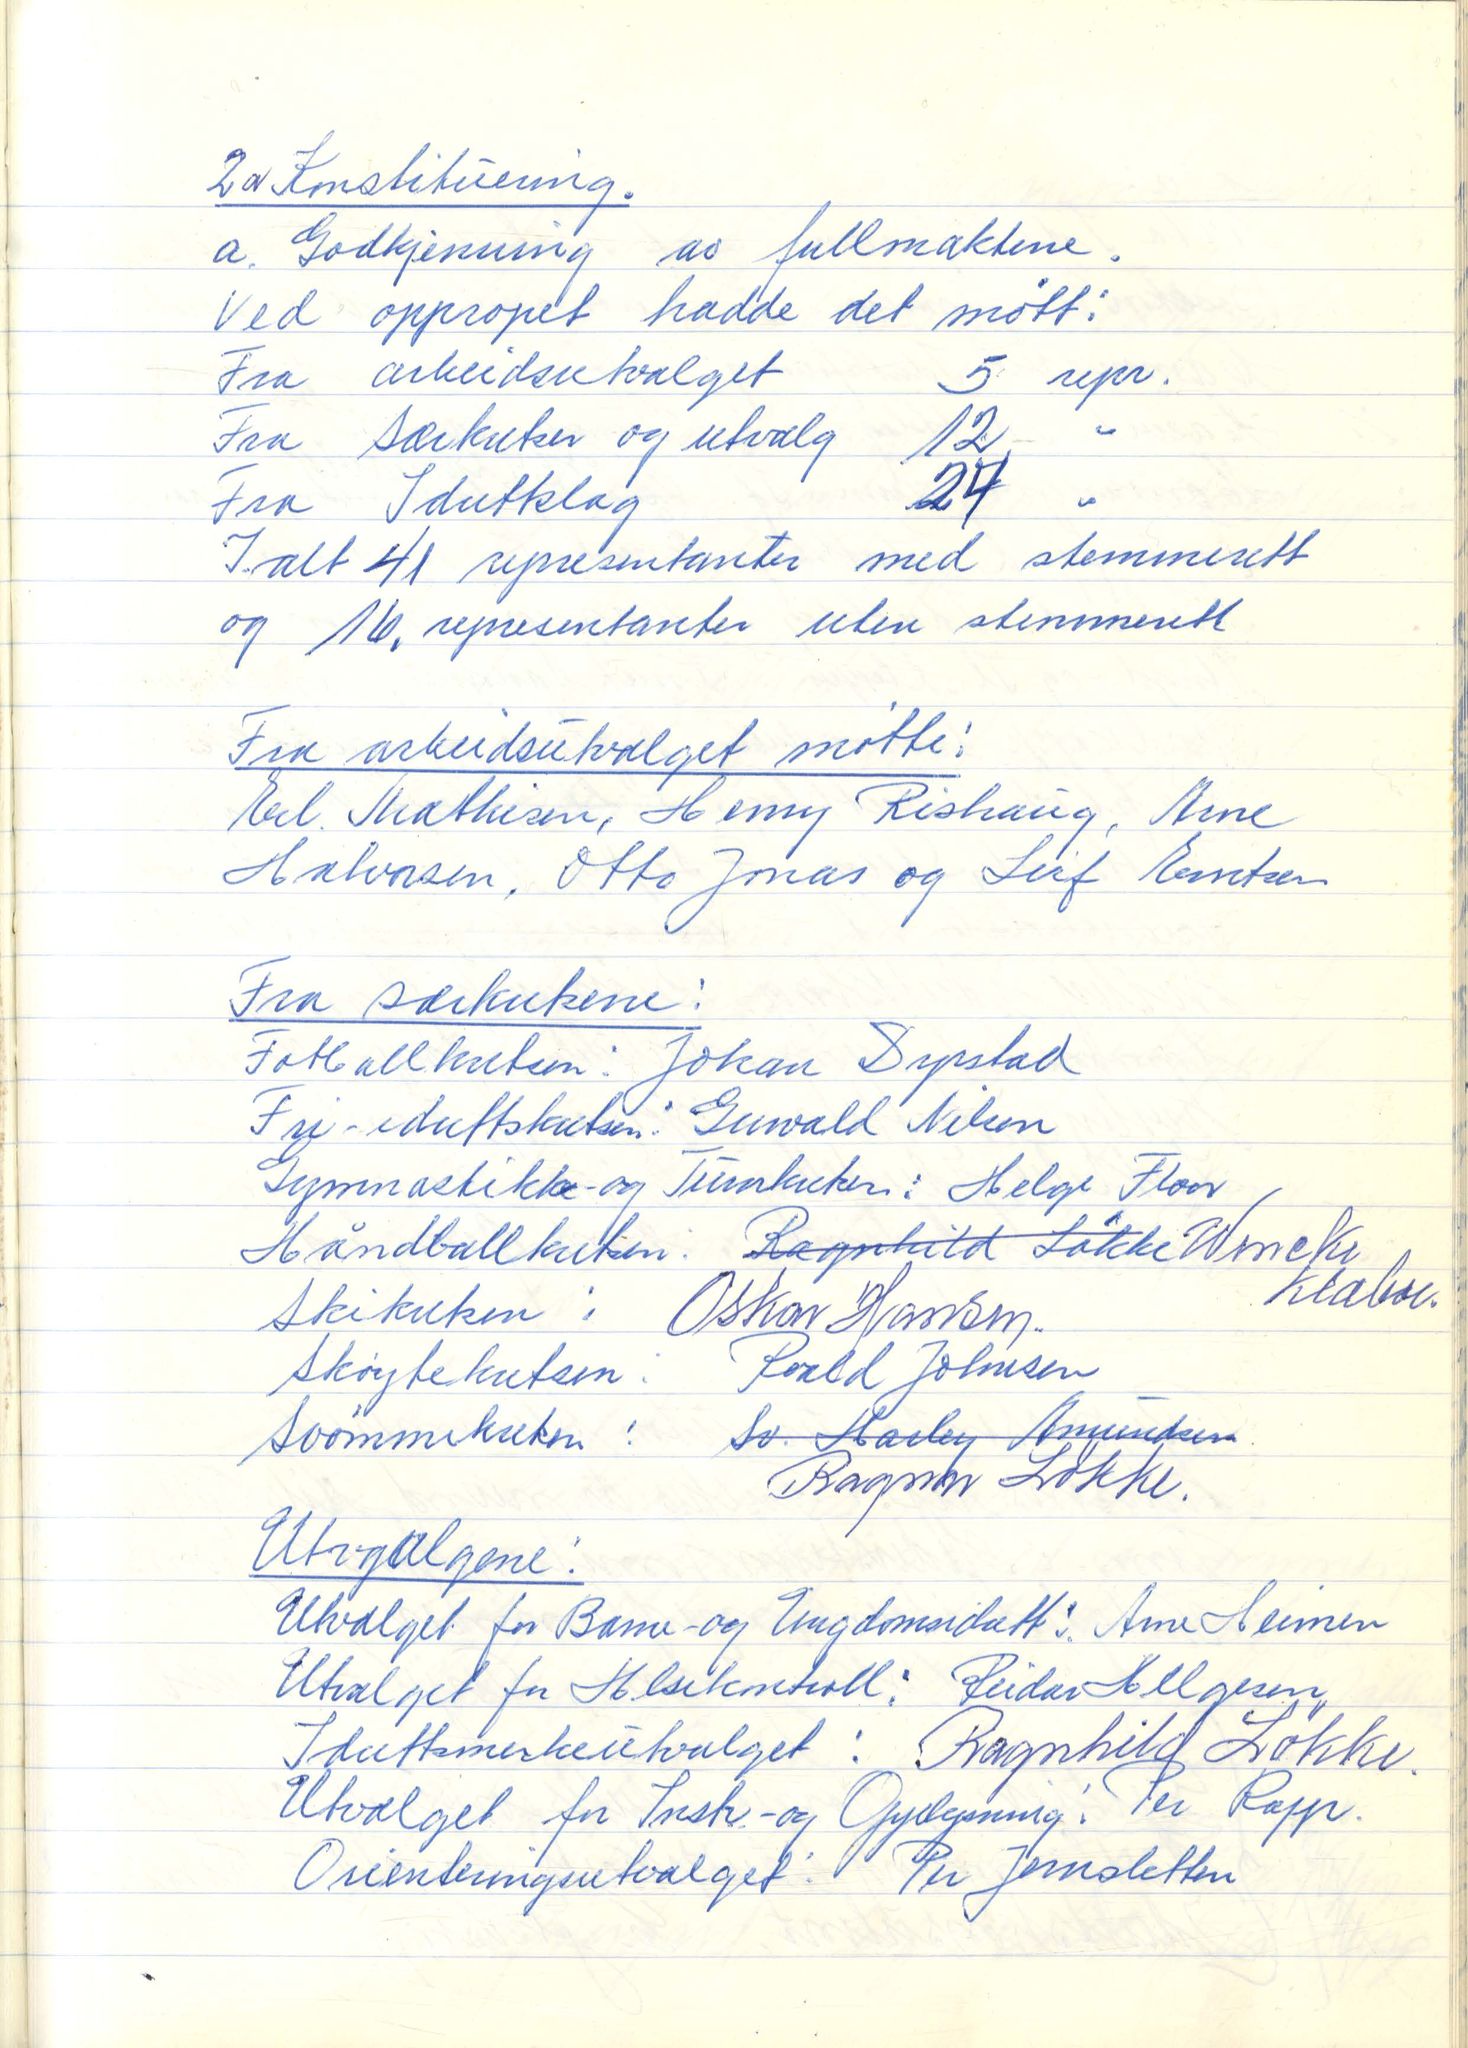 2a Konstituering.
a. Godkjenning av fullmaktene.
Ved oppropet hadde det møtt:
Fra arbeidsutvalget 5 repr.
Fra Særkretser og utvalg 12 "
Fra Idrettslag 24 "
I alt 41 representanter med stemmerett
og 16. representanter uten stemmerett
Fra arbeidsutvalget møtte:
Erl. Mathisen, Henry Rishaug, Arne
Halvorsen, Otto Jonas og Leif Erntsen
Fra særkretsene:
Fotballkretsen: Johan Dyrstad
Fri-idrettskretsen: Gunvald Nilsen
Gymnastikk-og Turnkretsen: Helge Floor
Håndballkretsen: Ragnhild Løkke Wencke
Klaboe.
Skikretsen: Oskar Hansen.
Skøytekretsen: Roald Johnsen
Svømmekretsen: Sv. Harley Amundsen
Ragnar Løkke.
Utvalgene:
Utvalget for Barne-og Ungdomsidrett: Arne Heimen
Utvalget for Helsekontroll: Reidar Helgesen
Idrettsmerkeutvalget: Ragnhild Løkke.
Utvalget for Instr.-og Opplysning: Per Rapp.
Orienteringsutvalget: Per Jernsletten